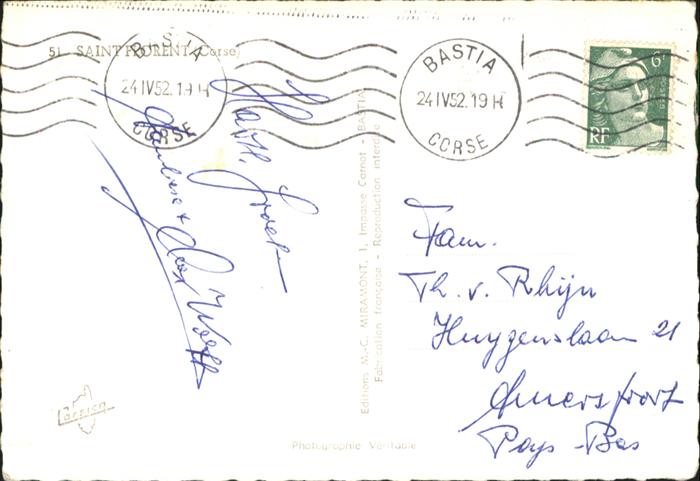 51 SAINT FLORENT (Corse)
BASTIA
24 IV 52. 19 H
CORSE
BASTIA
24 IV 52. 19 H
CORSE
6F
RF
Hartl. Groeten
Editions M.-C. MIRAMONT, 1, Impasse Carnot - BASTIA
Fabrication française - Reproduction interdite
Fam.
Th. v. Rhijn
Huygenslaan 21
Amersfoort
Pays-Bas
Corsica
Photographie Véritable